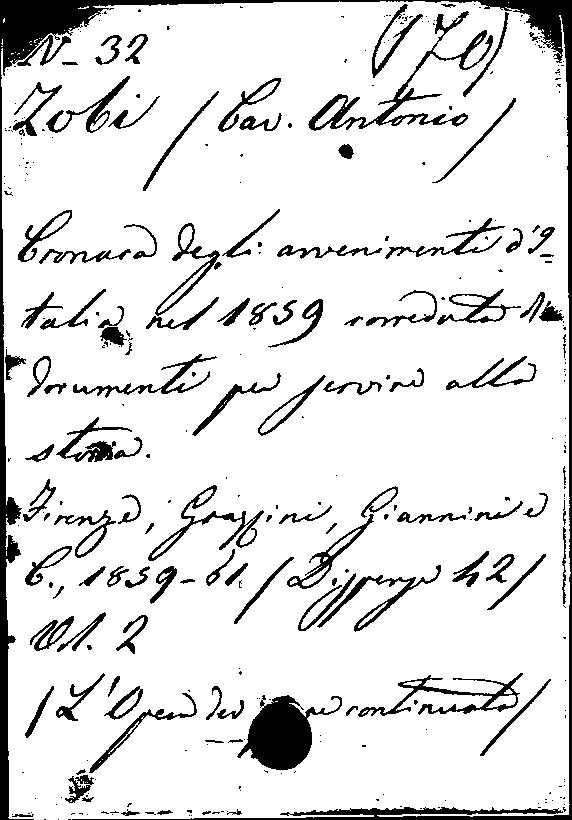 N- 32 (170)
Zobi / Cav. Antonio /
Cronaca degli avvenimenti d'I=
talia nel 1859 corredata di
documenti per servire alla
storia.
Firenze, Grazzini, Giannini e
C., 1859-61 / Dispense 42 /
Vol. 2
/ L'Opera dev continuata /